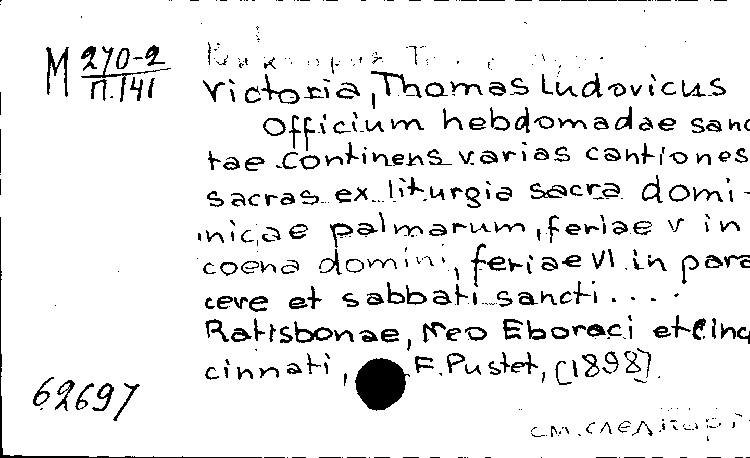 М 270-2
П.141
Victoria, Thomas Ludovicus
Officium hebdomadae sanc
tae continens varias cantiones
sacras ex liturgia sacra domi-
nicae palmarum, feriae V in
coena domini, feriae VI in para
ceve et sabbati sancti....
Ratisbonae, Neo Eboraci et Cinc
cinnati, F. Pustet, [1898].
62697
см. след карт